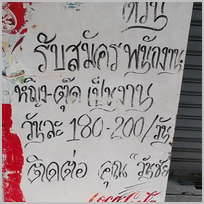 ด่วน
รับสมัคร พนักงาน
หญิง-ตุ๊ด เป็นงาน
วันละ 180-200/วัน
ติดต่อ คุณ วันชัย